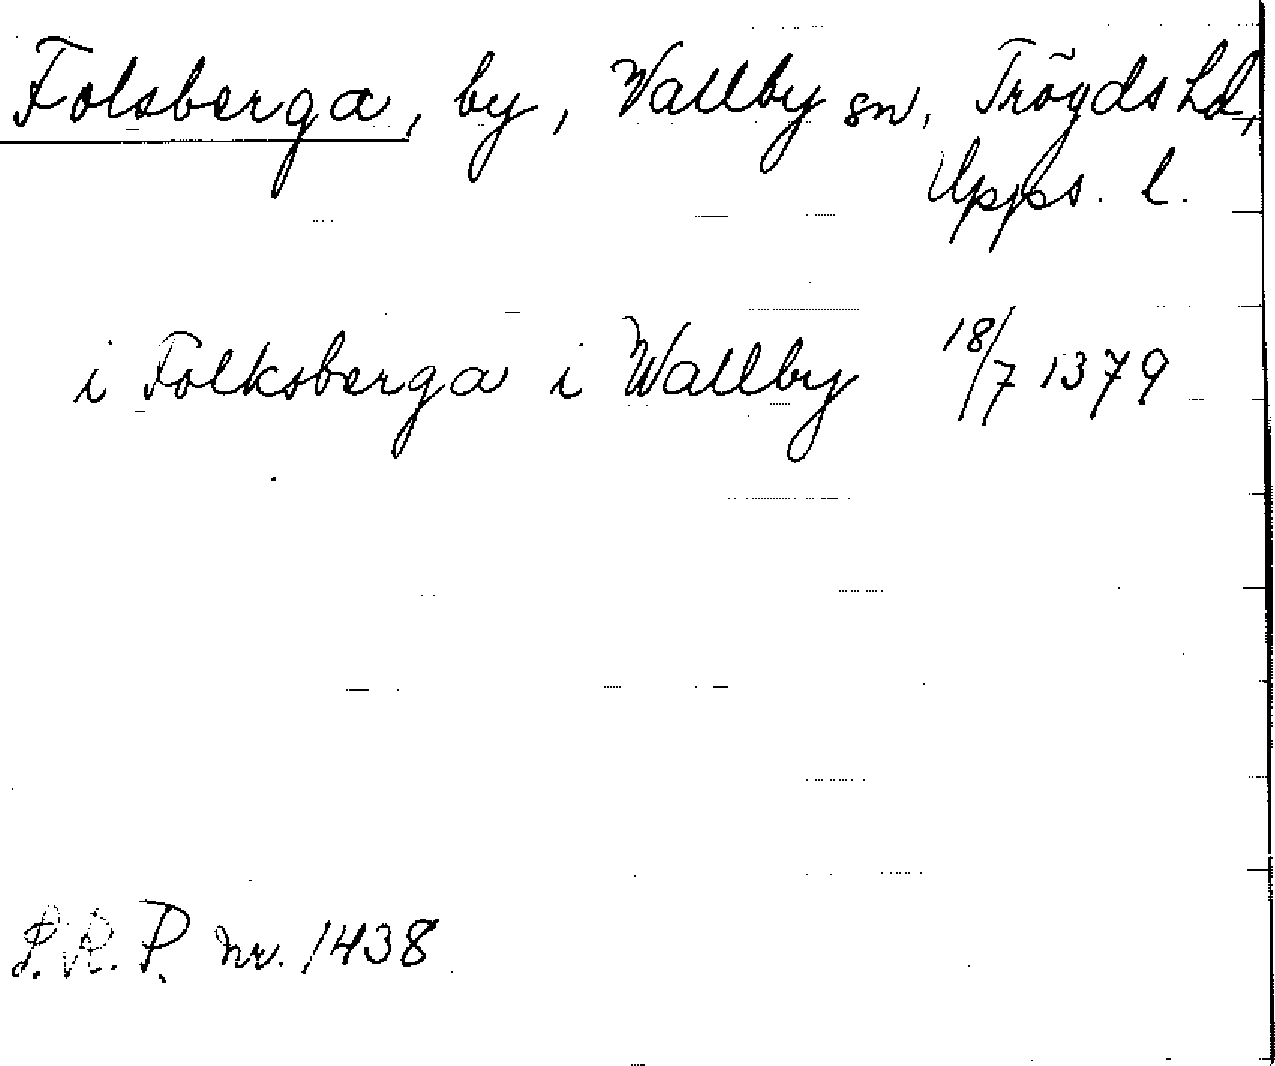 Folsberga, by, Wallby sn, Trögds hd,
Upps. l.
i Folksberga i Wallby 18/7 1379
S.R.P. nr. 1438